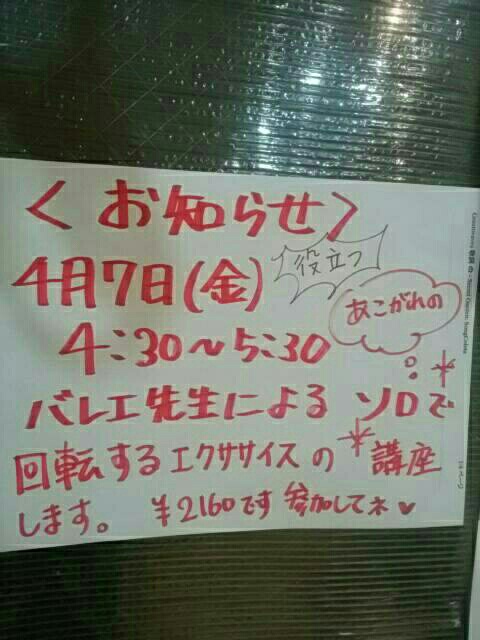 〈お知らせ〉
4月7日(金)
役立つ
4:30～5:30
あこがれの
バレエ先生による ソロで
回転するエクササイズの 講座
します。 ¥2160です 参加してネ♥